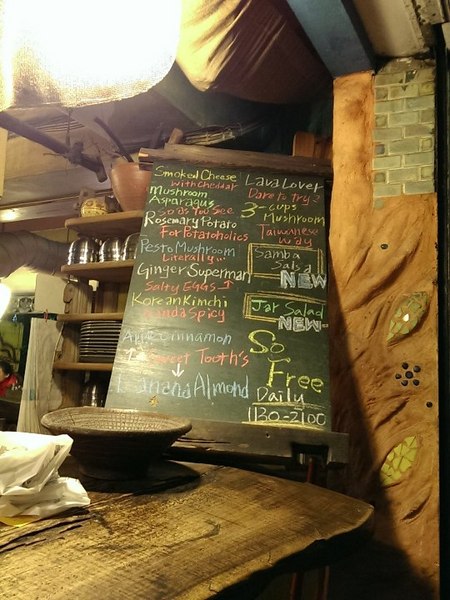 Smoked Cheese
with cheddar
Mushroom
Asparagus
So as You See
Rosemary Potato
For Potatoholics
Pesto Mushroom
Literally...
Ginger Superman
Salty Eggs
Korean Kimchi
Kinda Spicy
Apple Cinnamon
Sweet Tooth's
Banana Almond
Lava Lover
Dare to Try?
3-cups
Mushroom
Taiwanese
way
Samba
Salsa
NEW
Jar Salad
NEW
So
Free
Daily
1130-2100